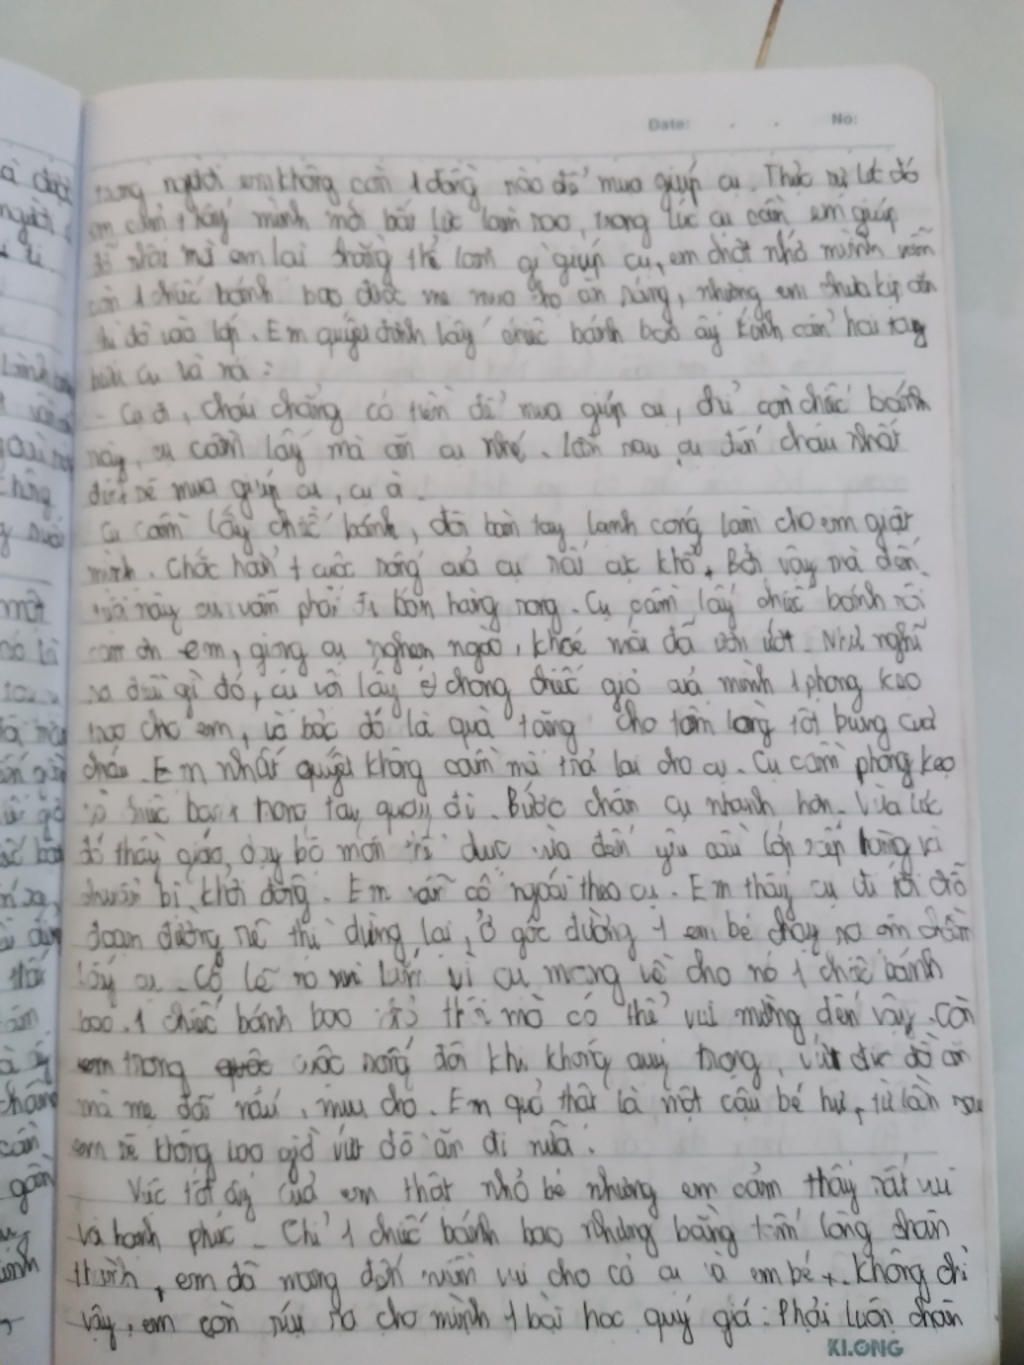 Date: No:
trong người em không còn 1 đồng nào để mua giúp cụ. Thực sự lúc đó
em cảm thấy mình mới bất lực làm sao, trong lúc cụ cần em giúp
đỡ nhất mà em lại chẳng thể làm gì giúp cụ, em chợt nhớ mình vẫn
còn 1 chiếc bánh bao được mẹ mua cho ăn sáng, nhưng em chưa kịp ăn
thì đã vào lớp. Em quyết định lấy chiếc bánh bao ấy kính cẩn hai tay
biếu cụ và nói:
- Cụ ơi, cháu chẳng có tiền để mua giúp cụ, chỉ còn chiếc bánh
này, cụ cầm lấy mà ăn cụ nhé. Lần sau cụ đến cháu nhất
định sẽ mua giúp cụ, cụ ạ.
Cụ cầm lấy chiếc bánh, đôi bàn tay lạnh cóng làm cho em giật
mình. Chắc hẳn cuộc sống của cụ rất cực khổ. Bởi vậy mà đến
tuổi này cụ vẫn phải đi bán hàng rong. Cụ cầm lấy chiếc bánh rồi
cảm ơn em, giọng cụ nghẹn ngào, khoé mắt đã ươn ướt. Như nghĩ
ra điều gì đó, cụ vội lấy ở trong chiếc giỏ của mình 1 phong kẹo
trao cho em, và bảo đó là quà tặng cho tấm lòng tốt bụng của
cháu. Em nhất quyết không cầm mà trả lại cho cụ. Cụ cầm phong kẹo
và chiếc bánh trong tay quay đi. Bước chân cụ nhanh hơn. Vừa lúc
đó thầy giáo dạy bộ môn thể dục vừa đến yêu cầu lớp xếp hàng và
chuẩn bị khởi động. Em vẫn cố ngoái theo cụ. Em thấy cụ đi tới chỗ
đoạn đường rẽ thì dừng lại, ở góc đường 1 em bé chạy ra ôm chầm
lấy cụ. Có lẽ nó vui lắm vì cụ mang về cho nó 1 chiếc bánh
bao. 1 chiếc bánh bao thôi mà có thể vui mừng đến vậy. Còn
em trong cuộc sống đôi khi không quý trọng, vứt đi đồ ăn
mà mẹ đã nấu, mua cho. Em quả thật là một cậu bé hư, từ lần sau
em sẽ không bao giờ vứt đồ ăn đi nữa.
Việc tốt ấy của em thật nhỏ bé nhưng em cảm thấy rất vui
và hạnh phúc. Chỉ 1 chiếc bánh bao nhưng bằng tấm lòng chân
thành, em đã mang đến niềm vui cho cả cụ và em bé. Không chỉ
vậy, em còn rút ra cho mình 1 bài học quý giá: Phải luôn chân
KLONG